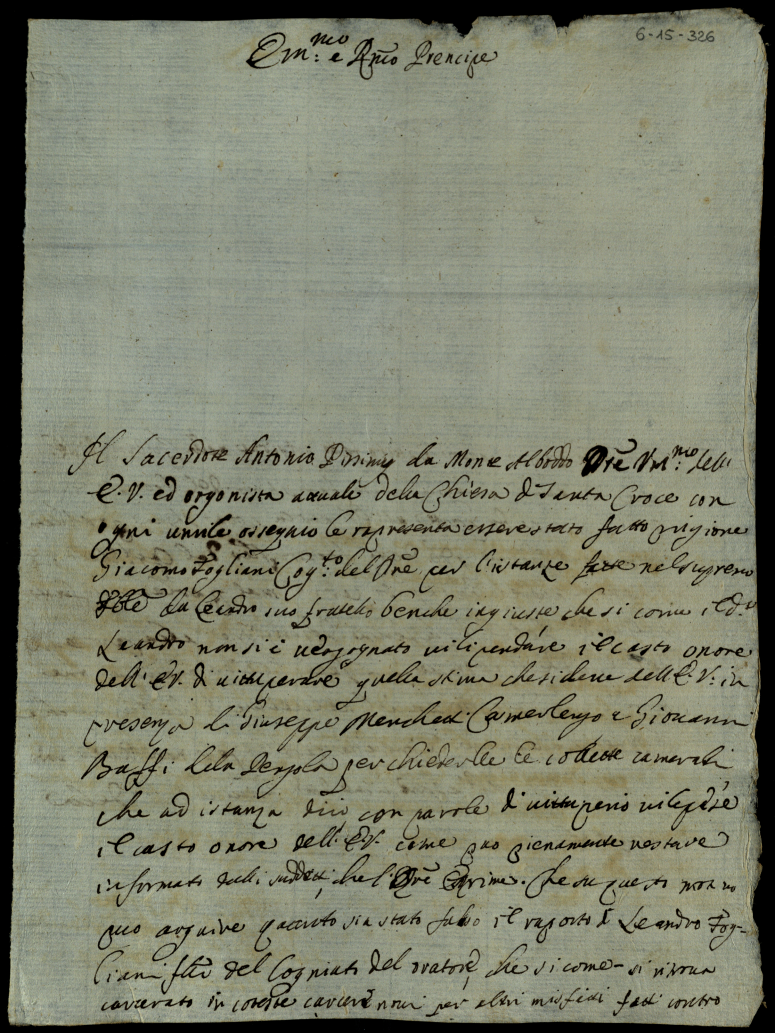 6-15-326
Em:mo e Rmo Prencipe
Il Sacerdote Antonio da Monte Alboddo Ore Um:mo dell
E.V. ed organista attuale della Chiesa di Santa Croce con
ogni umile ossequio le rapresenta essere stato fatto prigione
Giacomo Fogliani Cog:to del Ore per l'istanze fatte nel supremo
Tble da Leandro suo fratello benche ingiuste che si come il do
Leandro non si è vergognato vilipendare il casto onore
dell' E.V. di vituperare quella stima che si deve dell E.V. in
presenza di Giuseppe Camerlengo e Giovanni
Baffi dela Pergola per chiederlle le collette camerali
che ad istanza con parole di vituperio
il casto onore dell' E.V. come puo pienamente restare
informato dalli suddetti, che l' Ore Che su questo
puo arguire quanto sia stato falso il raporto di Leandro Fog-
liani del Cogniato del oratore, che si come si ritrova
carcerato in coteste carceri per altri misfatti fatti contro